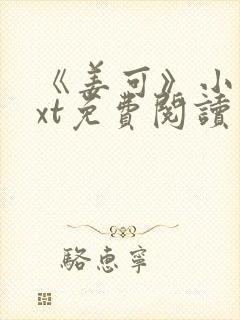 《姜可》小
xt免費閱讀
駱惠寧